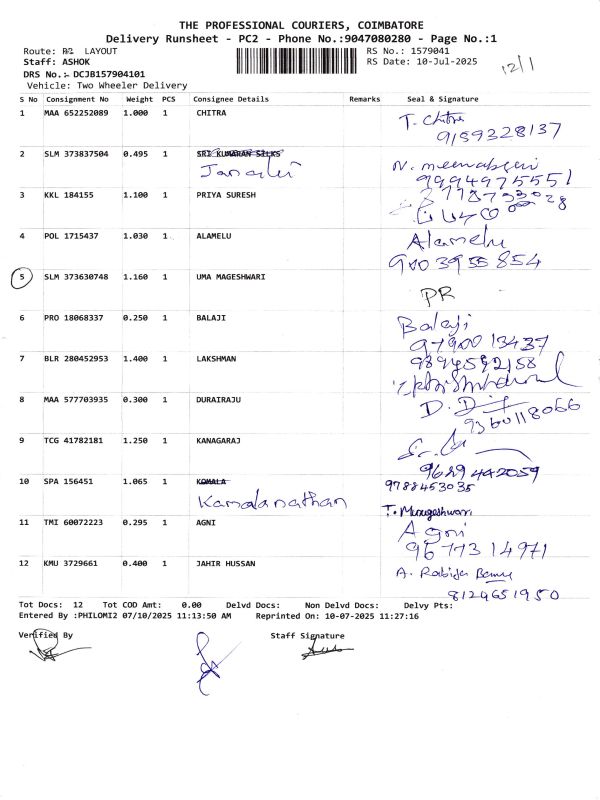 THE PROFESSIONAL COURIERS, COIMBATORE
Delivery Runsheet - PC2 - Phone No.:9047080280 - Page No.:1
Route: LAYOUT RS No.: 1579041
Staff: ASHOK RS Date: 10-Jul-2025
12/1
DRS No.:- DCJB157904101
Vehicle: Two Wheeler Delivery
S No Consignment No Weight PCS Consignee Details Remarks Seal & Signature
1 MAA 652252089 1.000 1 CHITRA T. Chitra
9159328137
2 SLM 373837504 0.495 1 SRI KUMARAN SILKS N. meenakshi
9994975551
3 KKL 184155 1.100 1 PRIYA SURESH
4 POL 1715437 1.030 1 ALAMELU Alamelu
9003955854
5 SLM 373630748 1.160 1 UMA MAGESHWARI
PR
6 PRO 18068337 0.250 1 BALAJI Balaji
9790013437
7 BLR 280452953 1.400 1 LAKSHMAN 9894592158
8 MAA 577703935 0.300 1 DURAIRAJU D.
9360118066
9 TCG 41782181 1.250 1 KANAGARAJ
9689442059
10 SPA 156451 1.065 1 KOMALA 9788453035
Kamalanathan
T. Murugeshwari
11 TMI 60072223 0.295 1 AGNI Agni
9677314971
12 KMU 3729661 0.400 1 JAHIR HUSSAN A. Rabiya Banu
8129651950
Tot Docs: 12 Tot COD Amt: 0.00 Delvd Docs: Non Delvd Docs: Delvy Pts:
Entered By :PHILOMI2 07/10/2025 11:13:50 AM Reprinted On: 10-07-2025 11:27:16
Verified By Staff Signature